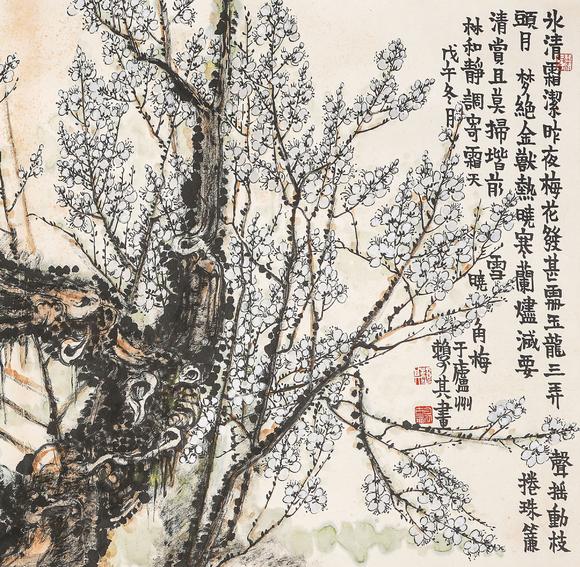 氷清霜潔昨夜梅花發甚處玉龍三弄聲搖動枝
頭月梦絕金獸熱曉寒蘭燼減要捲珠簾
清賞且莫掃堦前雪
林和靜調寄霜天曉角梅
戊午冬月于廬州
其畫